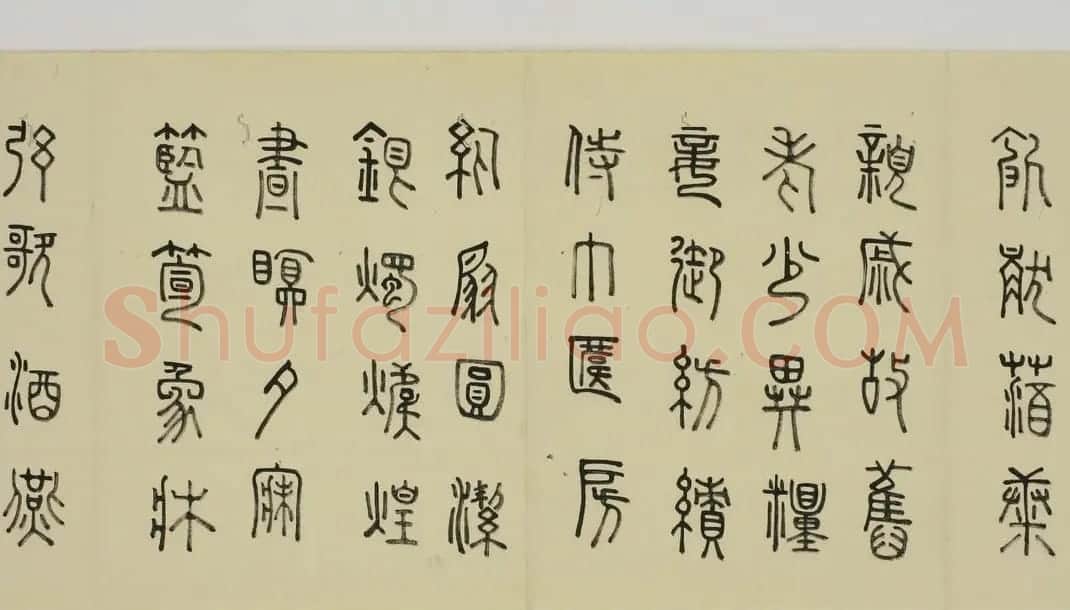 飢
親戚故舊
老少異糧
妾御紡績
侍巾帷房
紈扇圓潔
銀燭煒煌
晝瞑夕寐
籃筍象牀
弦歌酒燕
Shufaziliao.COM